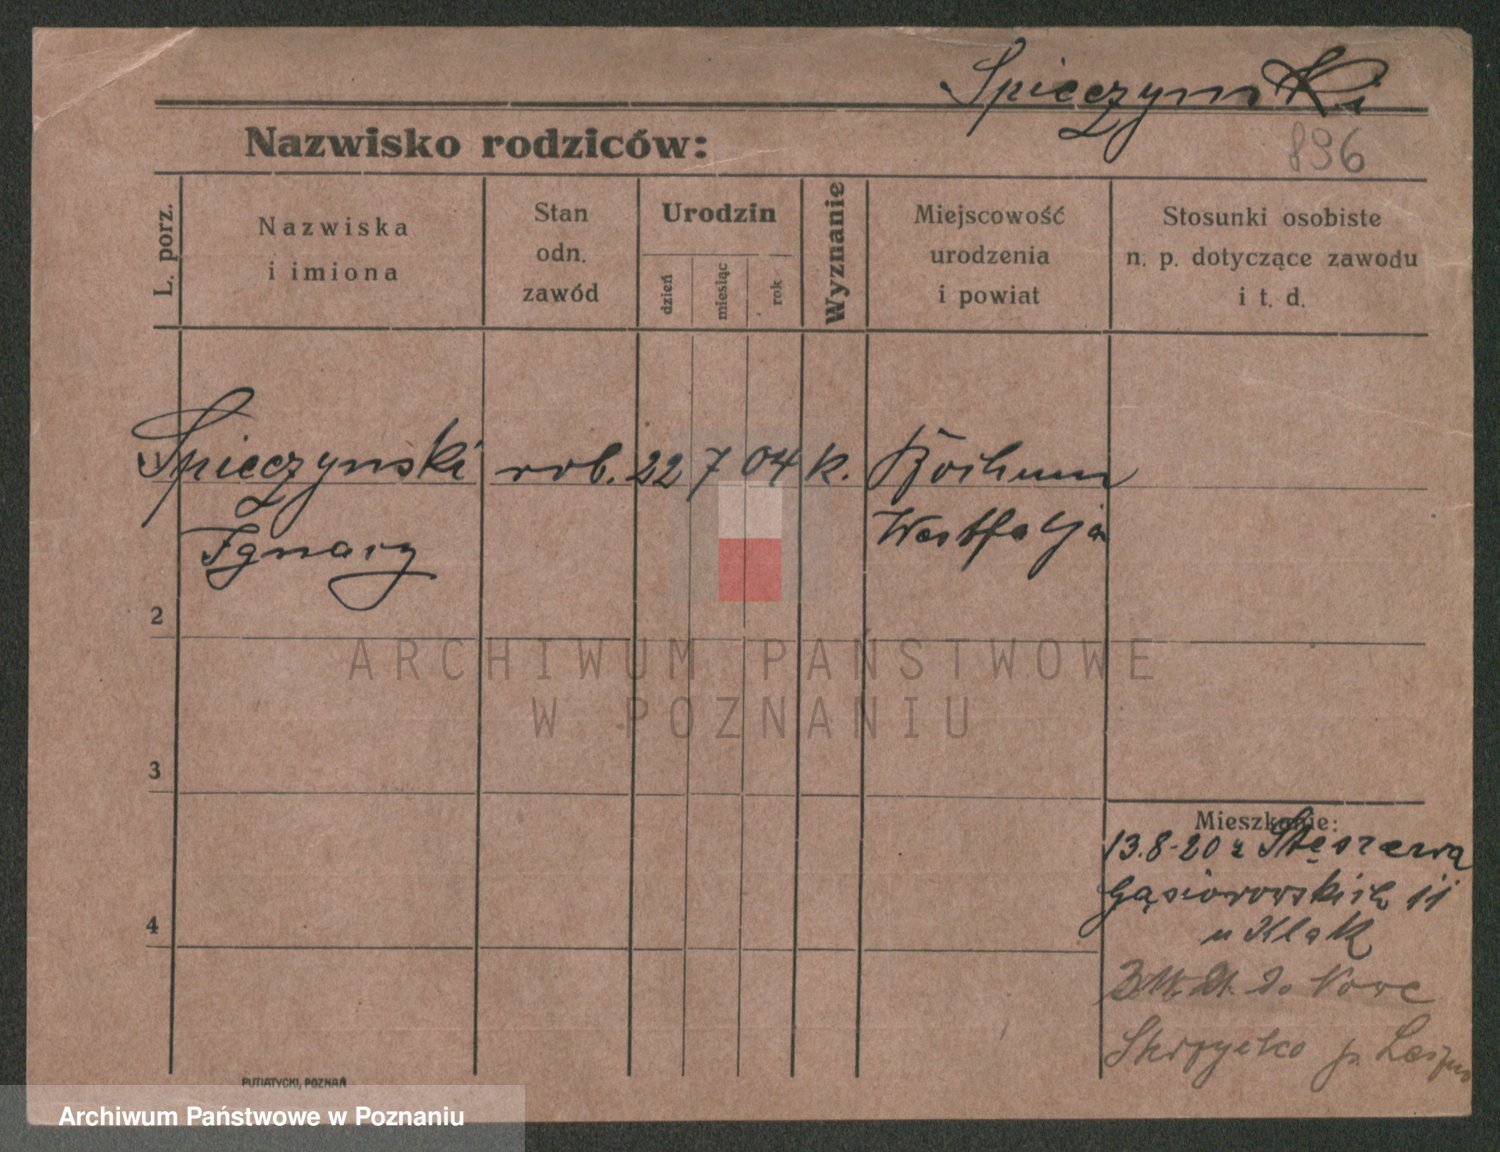 Spieczynski
Nazwisko rodziców:
896
L. porz.
Nazwiska
i imiona
Stan
odn.
zawód
Urodzin
dzień
miesiąc
rok
Wyznanie
Miejscowość
urodzenia
i powiat
Stosunki osobiste
n. p. dotyczące zawodu
i t. d.
Spieczynski rob. 22 7 04 k. Bochum
Ignacy Westfalja
2
ARCHIWUM PAŃSTWOWE
W POZNANIU
3
Mieszkanie:
13.8.20 z Stęszewa
Gąsiorowskich 11
u Klak
4
do Nowe
p.
PUTIATYCKI, POZNAŃ
Archiwum Państwowe w Poznaniu